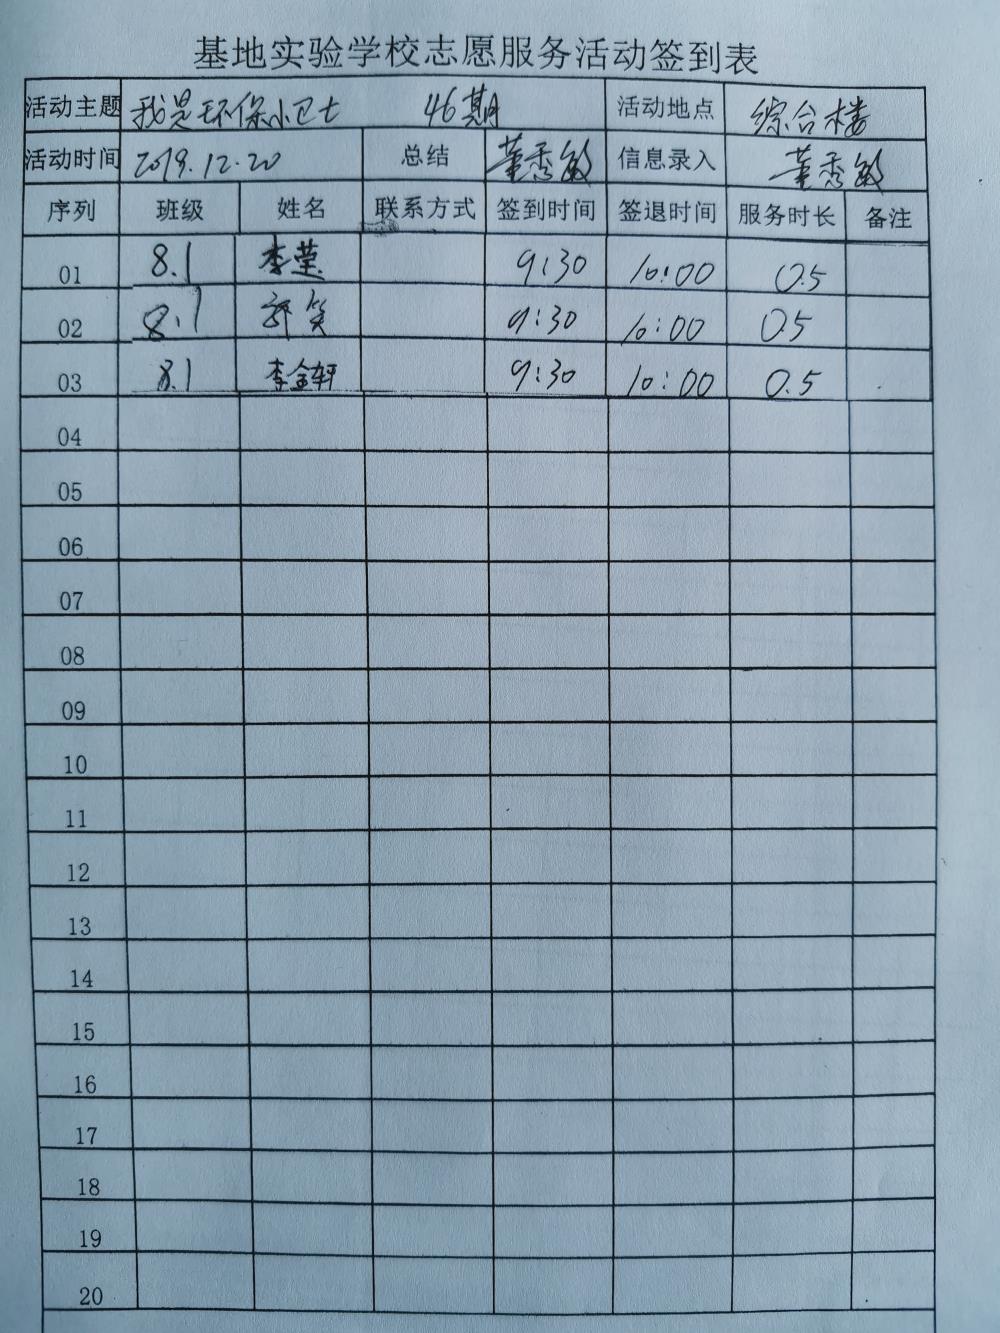 基地实验学校志愿服务活动签到表
活动主题 我是环保小卫士 46期 活动地点 综合楼
活动时间 2019.12.20 总结 董秀敏 信息录入 董秀敏
序列 班级 姓名 联系方式 签到时间 签退时间 服务时长 备注
01 8.1 李莹 9:30 10:00 0.5
02 8.1 9:30 10:00 0.5
03 8.1 李金轩 9:30 10:00 0.5
04
05
06
07
08
09
10
11
12
13
14
15
16
17
18
19
20